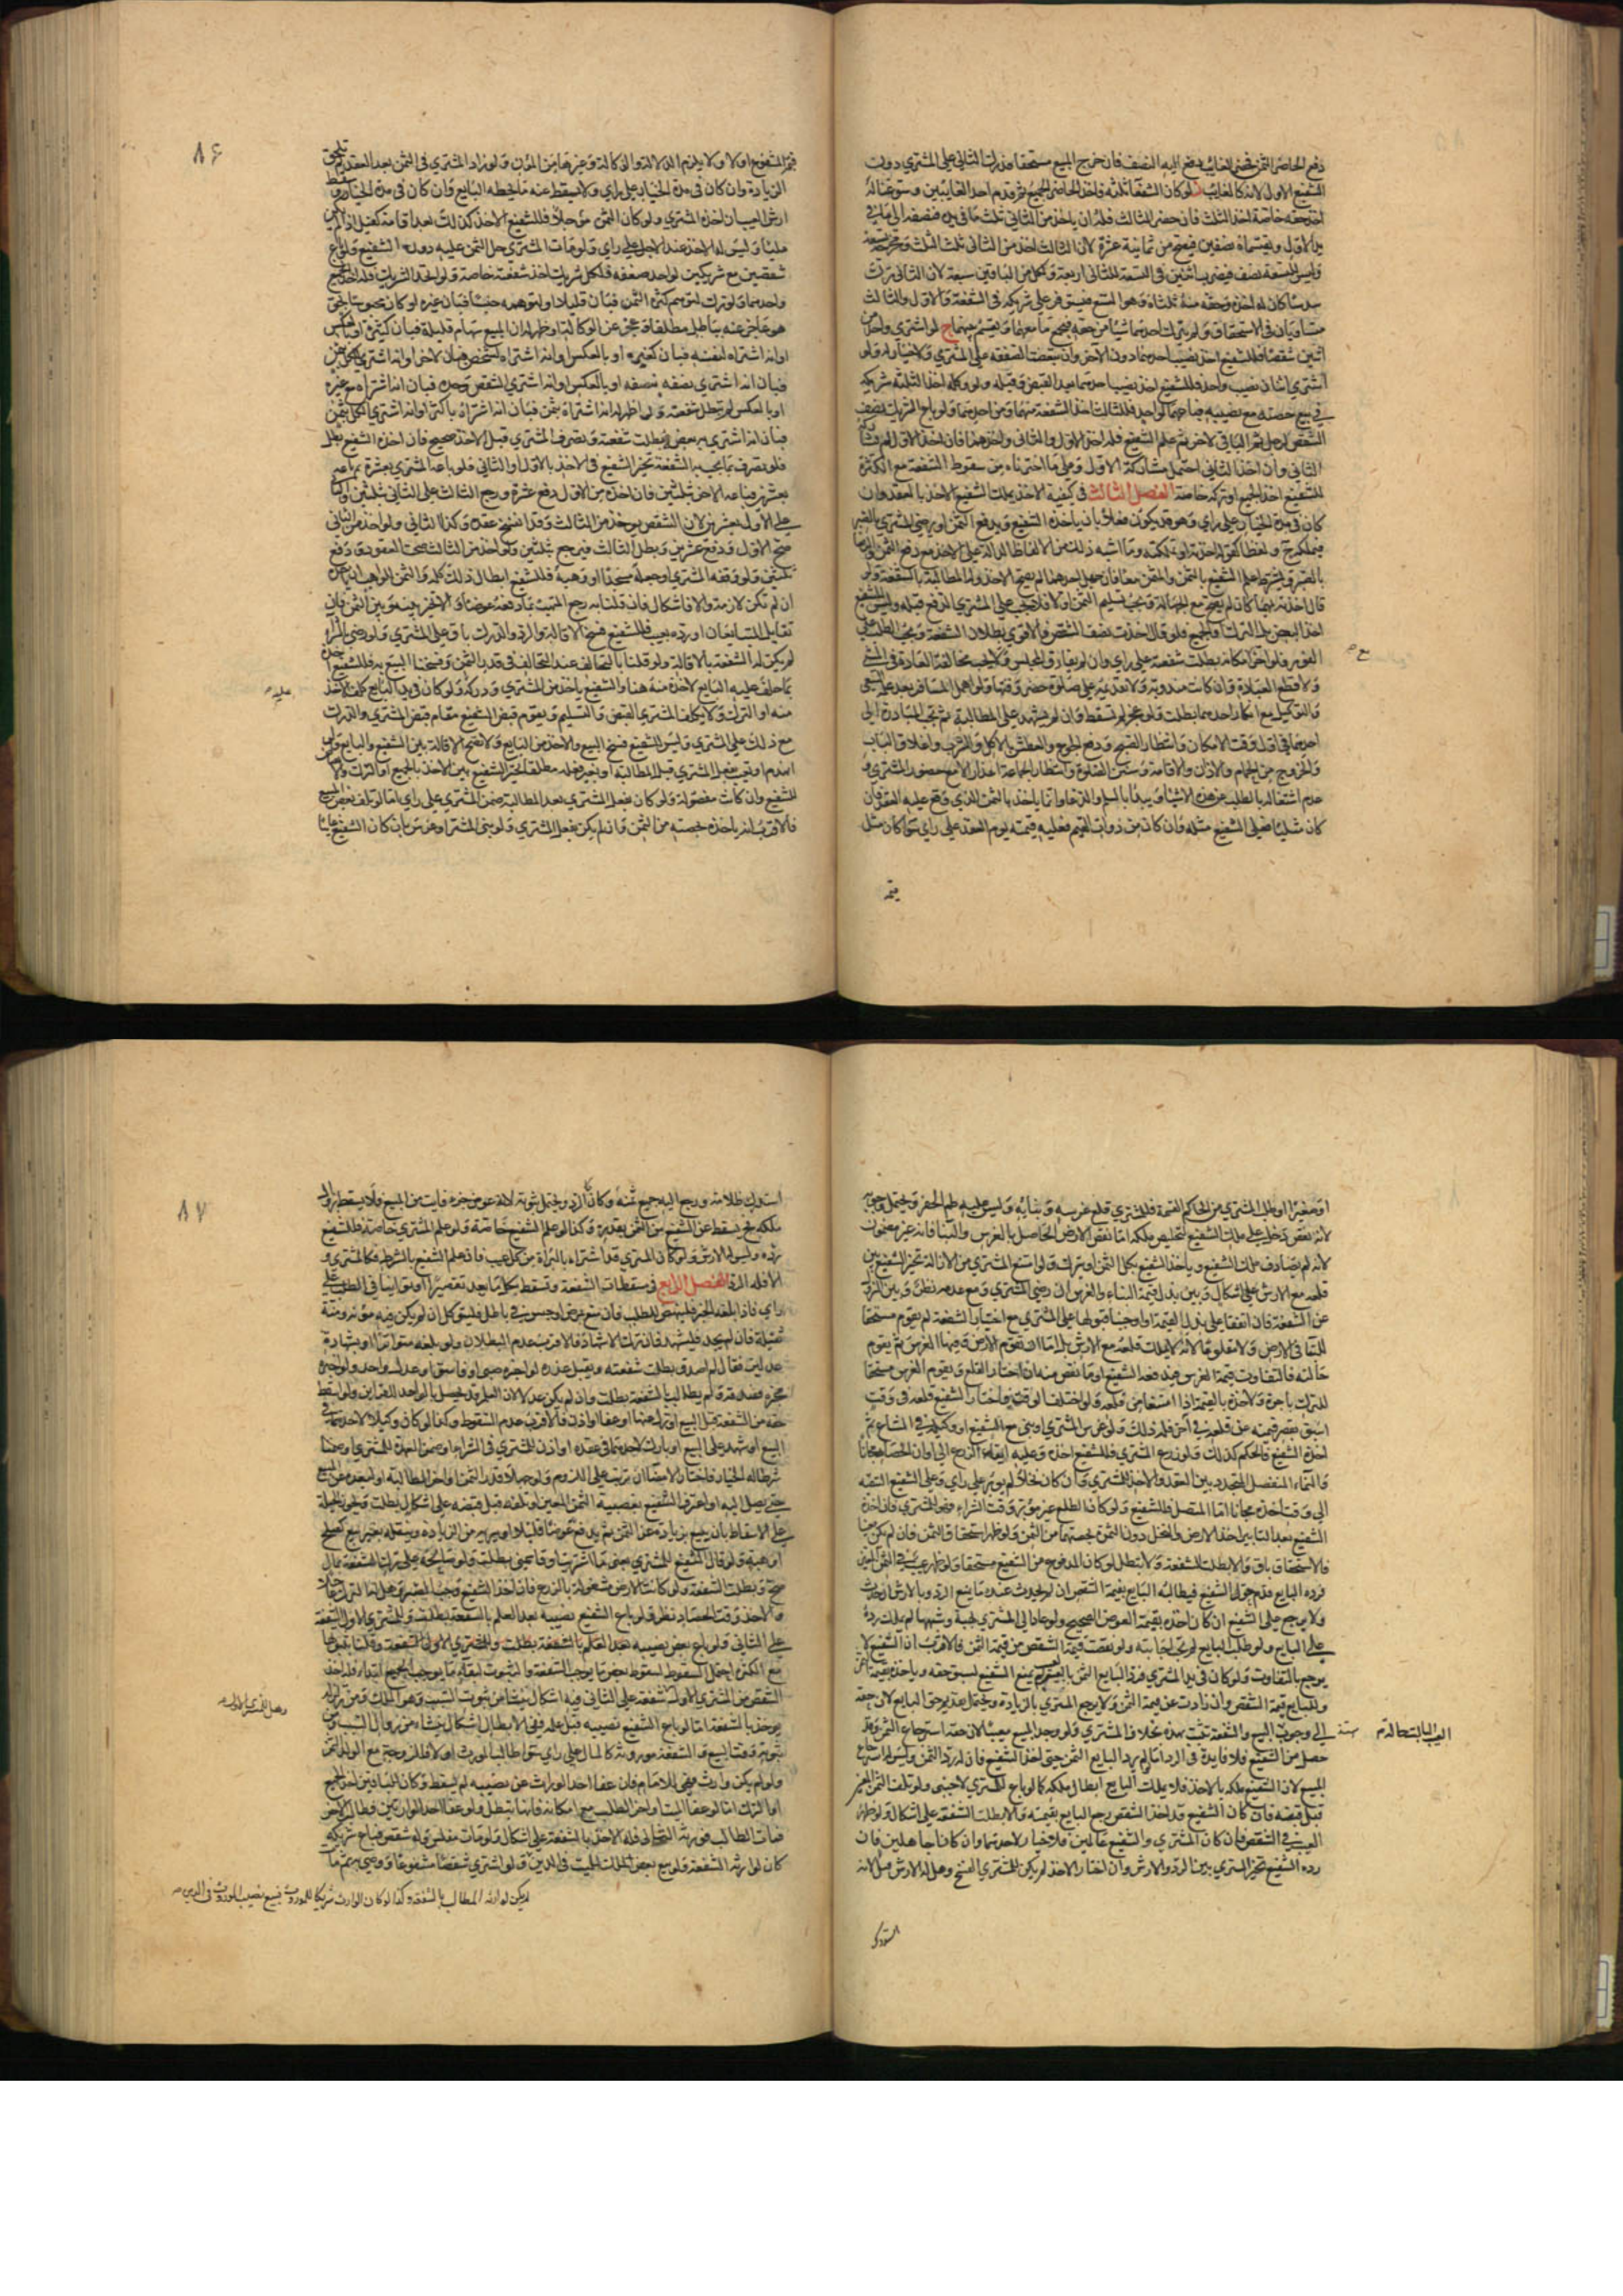 دفع الحاضر الثمن فحضر الغائب دفع اليه النصف فان خرج المبيع مستحقا فدرك الثاني على المشتري دون
الشفيع الاول لانه كالغائب لو كان الشفعاء ثلثة فاخذ الحاضر الجميع ثم قدم احد الغايبين وسوغنا له
اخذ حقه خاصة اخذ الثلث فان حضر الثالث فله ان ياخذ من الثاني ثلث ما في يده فيضيفه الى ما في
يد الاول ويقتسمانه نصفين فيصح من ثمانية عشر لان الثالث اخذ من الثاني ثلث الثلث ومخرجه تسعة
وليس للتسعة نصف فيضرب اثنين في التسعة للثاني اربعة ولكل من الباقين سبعة لان الثاني ترك
سدسا كان له اخذه وحقه منه ثلثاه وهو التسع فيتوفر على شريكه في الشفعة والاول والثالث
متساويان في الاستحقاق ولم يترك احدهما شيئا من حقه فيجمع ما معهما ويقسم بينهما ح لو اشترى واحد من
اثنين شقصا فللشفيع اخذ نصيب احدهما دون الآخر وان تبعضت الصفقة على المشتري ولا خيار له ولو
اشترى اثنان نصيب واحد فللشفيع اخذ نصيب احدهما بعد القبض وقبله ولو وكل احد الثلثة شريكه
في بيع حصته مع نصيبه فباعهما لواحد فللثالث اخذ الشفعة منهما ومن احدهما ولو باع الشريك نصف
الشقص لرجل ثم الباقي لآخر ثم علم الشفيع فله اخذ الاول والثاني واحدهما فان اخذ الاول لم يشاركه
الثاني وان اخذ الثاني احتمل مشاركة الاول وعلى ما اخترناه من سقوط الشفعة مع الكثرة
للشفيع اخذ الجميع او تركه خاصة الفصل الثالث في كيفية الاخذ يملك الشفيع الاخذ بالعقد وان
كان في مدة الخيار على راي وهو قد يكون فعلا بان ياخذه الشفيع ويدفع الثمن او يرضى المشتري بالصبر
فيملكه ح ولفظا كقوله اخذته او تملكته وما اشبه ذلك من الالفاظ الدالة على الاخذ مع دفع الثمن او الرضا
بالصبر ويشترط علم الشفيع بالثمن والمثمن معا فان جهل احدهما لم يصح الاخذ وله المطالبة بالشفعة ولو
قال اخذته بمهما كان لم يصح مع الجهالة ويجب تسليم الثمن اولا فلا يجب على المشتري الدفع قبله وليس للشفيع
اخذ البعض بل الترك او الجميع فلو قال اخذت نصف الشقص فالاقوى بطلان الشفعة ويجب الطلب على
الفور فلو اخر مع امكانه بطلت شفعته على راي وان لم يفارق المجلس ولا يجب مخالفة العادة في المشي
ولا قطع العبادة وان كانت مندوبة ولا تقديمه على صلوة حضر وقتها ولو اهمل المسافر بعد علمه السعي
والتوكيل مع امكان احدهما بطلت ولو عجز لم تسقط وان لم يشهد على المطالبة ثم تجب المبادرة الى
احدهما في اول وقت الامكان وانتظار الصبح ودفع الجوع والعطش بالاكل والشرب واغلاق الباب
والخروج من الحمام والاذان والاقامة وسنن الصلوة وانتظار الجماعة اعذار الا مع حضور المشتري و
عدم اشتغاله بالطلب عن هذه الاشياء ويبدا بالسلام والدعاء وانما ياخذ بالثمن الذي وقع عليه العقد فان
كان مثليا فعلى الشفيع مثله وان كان من ذوات القيم فعليه قيمته يوم العقد على راي سواء كان مثل
قيمة
٨۶
قيمة المشفوع او لا ولا يلزم الدلالة والوكالة وغيرها من المؤن ولو زاد المشتري في الثمن بعد العقد لم تلحق
الزيادة وان كان في مدة الخيار على راي ولا يسقط عنه ما يحطه البايع وان كان في مدة الخيار ويسقط
ارش العيب ان اخذه المشتري ولو كان الثمن مؤجلا فللشفيع الاخذ كذلك بعد اقامة كفيل اذا لم يكن
مليا وليس له الاخذ عند الاجل على راي ولو مات المشتري حل الثمن عليه دون الشفيع ولو باع
شقصين مع شريكين لواحد صفقة فلكل شريك اخذ شفعته خاصة ولو اتحد الشريك فله اخذ الجميع
واحدهما ولو ترك لتوهم كثرة الثمن فبان قليلا او لتوهمه جنسا فبان غيره او كان محبوسا بحق
هو عاجز عنه بباطل مطلقا وعجز عن الوكالة او ظهر له ان المبيع سهام قليلة فبان كثيرة او بالعكس
او انه اشتراه لنفسه فبان لغيره او بالعكس او انه اشتراه لشخص فبان لآخر او انه اشترى الكل بثمن
فبان انه اشترى نصفه بنصفه او بالعكس او انه اشترى الشقص وحده فبان انه اشتراه مع غيره
او بالعكس لم تبطل شفعته ولو اظهر له انه اشتراه بثمن فبان انه اشتراه باكثر او انه اشترى الكل بثمن
فبان انه اشترى به بعضه بطلت شفعته وتصرف المشتري قبل الاخذ صحيح فان اخذه الشفيع بطل
فلو تصرف بما تجب به الشفعة تخير الشفيع في الاخذ بالاول والثاني فلو باعه المشتري بعشرة بما
بعشرين فباعه الآخر بثلثين فان اخذ من الاول دفع عشرة ورجع الثالث على الثاني بثلثين والثاني
على الاول بعشرين لان الشقص يؤخذ من الثالث وقد انفسخ عقده وكذا الثاني ولو اخذ من الثاني
صح الاول ودفع عشرين وبطل الثالث فيرجع بثلثين ولو اخذ من الثالث صحت العقود ودفع
ثلثين ولو وقفه المشتري او جعله مسجدا او وهبه فللشفيع ابطال ذلك كله والثمن للواهب
ان لم تكن لازمة والا فاشكال فان قلنا به رجع المتهب بما دفعه عوضا والا تخير بينه وبين الثمن فان
تقايل المتبايعان او رده بعيب فللشفيع فسخ الاقالة والرد والدرك باق على المشتري ولو رضي بالشراء
لم يكن له الشفعة بالاقالة ولو قلنا بالتحالف عند التخالف في قدر الثمن وفسخنا البيع به فللشفيع اخذه
بما حلف عليه البايع لاخذه منه هنا والشفيع ياخذ من المشتري ودركه ولو كان في يد البايع كلف الاخذ
منه او الترك ولا يكلف المشتري القبض والتسليم ويقوم قبض الشفيع مقام قبض المشتري والدرك
مع ذلك على المشتري وليس للشفيع فسخ البيع والاخذ من البايع ولا تصح الاقالة بين الشفيع والبايع ولو
انهدم او تعيب بفعل المشتري قبل المطالبة او بغير فعله مطلقا تخير الشفيع بين الاخذ بالجميع او الترك
للشفيع وان كانت منفصلة ولو كان بفعل المشتري بعد المطالبة ضمن المشتري على راي اما لو تلف بعض المبيع
فالاقرب انه ياخذه بحصته من الثمن وان لم يكن بفعل المشتري ولو بنى المشتري او غرس بان كان الشفيع غائبا
او صغيرا او طلب المشتري من الحاكم القسمة فللمشتري قلع غرسه وبنائه وليس عليه طم الحفر ويحتمل وجوبه
لانه نقص دخل على ملك الشفيع لتخليص ملكه اما نقص الارض الحاصل بالغرس والبناء فانه غير مضمون
لانه لم يصادف ملك الشفيع وياخذ الشفيع بكل الثمن او يترك ولو امتنع المشتري من الازالة تخير الشفيع بين
قلعه مع الارش على اشكال وبين بذل قيمة البناء والغرس ان رضي المشتري ومع عدمه نظر وبين النزول
عن الشفعة فان اتفقا على بذل القيمة او اوجبنا قبولها على المشتري مع اختيار الشفعة لم يقوم مستحقا
للبقاء في الارض ولا مقلوعا لانه لا يملك قلعه مع الارش بل اما ان تقوم الارض وفيها الغرس ثم يقوم
خالية فالتفاوت قيمة الغرس فيدفعه الشفيع او ما نقص منه ان اختار القلع او يقوم الغرس مستحقا
للترك باجرة ولاخذه بالقيمة اذا امتنعا من قلعه ولو اختلف الوقت فاختار الشفيع قلعه في وقت
اسبق تقصر قيمته عن قلعه في آخر فله ذلك ولو غرس المشتري او بنى مع الشفيع او وكيله في المشاع ثم
اخذه الشفيع فالحكم كذلك ولو زرع المشتري فللشفيع اخذه وعليه ابقاء الزرع الى اوان الحصاد مجانا
والنماء المنفصل المتجدد بين العقد والاخذ للمشتري وان كان نخلا لم يؤبر على راي وعلى الشفيع التبقية
الى وقت اخذه مجانا اما المتصل فللشفيع ولو كان الطلع غير مؤبر وقت الشراء فهو للمشتري فان اخذه
الشفيع بعد التابير اخذ الارض والنخل دون الثمرة بحصتهما من الثمن ولو ظهر استحقاق الثمن فان لم يكن معينا
فالاستحقاق باق والا بطلت الشفعة ولا تبطل لو كان المدفوع من الشفيع مستحقا ولو ظهر عيب في الثمن المعين
فرده البايع قدم حق الشفيع فيطالبه البايع بقيمة الشقص ان لم يحدث عنده ما يمنع الرد وبالارش ان حدث
ولا يرجع على الشفيع ان كان اخذه بقيمة العوض الصحيح ولو عاد الى المشتري بهبة وشبهها لم يملك رده
على البايع ولو طلب البايع لم تجب اجابته ولو نقصت قيمة الشقص من قيمة الثمن فالاقرب ان الشفيع لا
يرجع بالتفاوت ولو كان في يد المشتري فرد البايع الثمن بالعيب لم يمنع الشفيع لسبق حقه وياخذه بقيمة الثمن
وللبايع قيمة الشقص وان زادت عن قيمة الثمن ولا يرجع المشتري بالزيادة ويحتمل تقديم حق البايع لان حقه
الى وجوب البيع والشفعة تثبت بعده بخلاف المشتري فلو وجد المبيع معيبا لان حقه استرجاع الثمن وقد
حصل من الشفيع فلا فايدة في الرد اما لو لم يرد البايع الثمن حتى اخذ الشفيع فان له رد الثمن وليس له استرجاع
المبيع لان الشفيع ملكه بالاخذ فلا يملك البايع ابطال ملكه كما لو باع المشتري لاجنبي ولو تلف الثمن المعين
قبل قبضه فان كان الشفيع قد اخذ الشقص رجع البايع بقيمته والا بطلت الشفعة على اشكال ولو ظهر
العيب في الشقص فان كان المشتري والشفيع عالمين فلا خيار لاحدهما وان كانا جاهلين فان
رده الشفيع تخير المشتري بين الرد والارش وان اختار الاخذ لم يكن للمشتري الفسخ وهل له الارش قيل لا لانه
استدرك
٨٧
استدرك ظلامته ورجع اليه جميع ثمنه وكان كالرد ويحتمل ثبوته لانه عوض جزء فايت من المبيع فلا يسقط بزوال
ملكه فح يسقط عن الشفيع من الثمن بقدره وكذا لو علم الشفيع خاصة ولو علم المشتري خاصة فللشفيع
رده وليس له الارش ولو كان المشتري قد اشتراه بالبراءة من كل عيب فان علم الشفيع بالشرط فكالمشتري و
الا فله الرد الفصل الرابع في مسقطات الشفعة وتسقط بكل ما يعد تقصيرا او توانيا في الطلب على
راي فاذا بلغه الخبر فلينهض للطلب فان منع بمرض او حبس في باطل فليوكل ان لم يكن فيه مؤنة ومنة
ثقيلة فان لم يجد فليشهد فان ترك الاشهاد فالاقرب عدم البطلان ولو بلغه متواترا او بشهادة
عدلين فقال لم اصدق بطلت شفعته ويقبل عذره لو اخبره صبي او فاسق او عدل واحد ولو اخبره
مخبر فصدقه ولم يطالب بالشفعة بطلت وان لم يكن عدلا لان العلم قد يحصل بالواحد للقراين ولو اسقط
حقه من الشفعة قبل البيع او نزل عنها او عفا او اذن فالاقرب عدم السقوط وكذا لو كان وكيلا لاحدهما في
البيع او شهد على البيع او بارك لاحدهما في عقده او اذن للمشتري في الشراء او ضمن العهدة للمشتري او
شرطا له الخيار فاختار الامضاء ان ترتب على اللزوم ولو جهلا قدر الثمن او اخر المطالبة لبعده عن المبيع
حتى يصل اليه او اعترف الشفيع بغصبية الثمن المعين او تلفه قبل قبضه على اشكال بطلت وتجوز الحيلة
على الاسقاط بان يبيع بزيادة عن الثمن ثم يدفع عوضا قليلا او يبريه من الزيادة او ينقله بغير بيع كصلح
او هبة ولو قال الشفيع للمشتري بعني ما اشتريت او قاسمني بطلت ولو صالحه على ترك الشفعة بمال
صح وبطلت الشفعة ولو كانت الارض مشغولة بالزرع فان اخذ الشفيع وجب الصبر وهل له الترك
والاخذ وقت الحصاد نظر ولو باع الشفيع نصيبه بعد العلم بالشفعة بطلت وللمشتري الاول الشفعة
على الثاني ولو باع بعض نصيبه بعد العلم بالشفعة بطلت وللمشتري الاول الشفعة وقلنا بثبوتها
مع الكثرة احتمل السقوط لسقوط بعض ما يوجب الشفعة والثبوت لبقاء ما يوجب الجميع ابتداء فله اخذ
الشقص من المشتري الاول شفعة على الثاني فيه اشكال ينشأ من ثبوت السبب وهو الملك ومن تزلزله
يؤخذ بالشفعة اما لو باع الشفيع نصيبه قبل علمه ففي الابطال اشكال ينشأ من زوال السبب ومن
ثبوته وقت البيع والشفعة موروثة كالمال على راي سواء طالب المورث او لا فللزوجة مع الولد الثمن
ولو لم يكن وارث فهي للامام فان عفا احد الوراث عن نصيبه لم يسقط وكان للباقين اخذ الجميع
او الترك اما لو عفا الميت او اخر الطلب مع امكانه فانها تبطل ولو عفا احد الوارثين وطالب الآخر
فمات الطالب فورثه الثاني فله الاخذ بالشفعة على اشكال ولو مات مفلس وله شقص فباع شريكه
كان لوارثه الشفعة ولو بيع بعض ملك الميت في الدين ولو اشترى شقصا مشفوعا ووصى به ثم مات
لم يكن لوارثه المطالبة بالشفعة وكذا لو كان الوارث شريكا للموروث فبيع نصيب الموروث في الدين